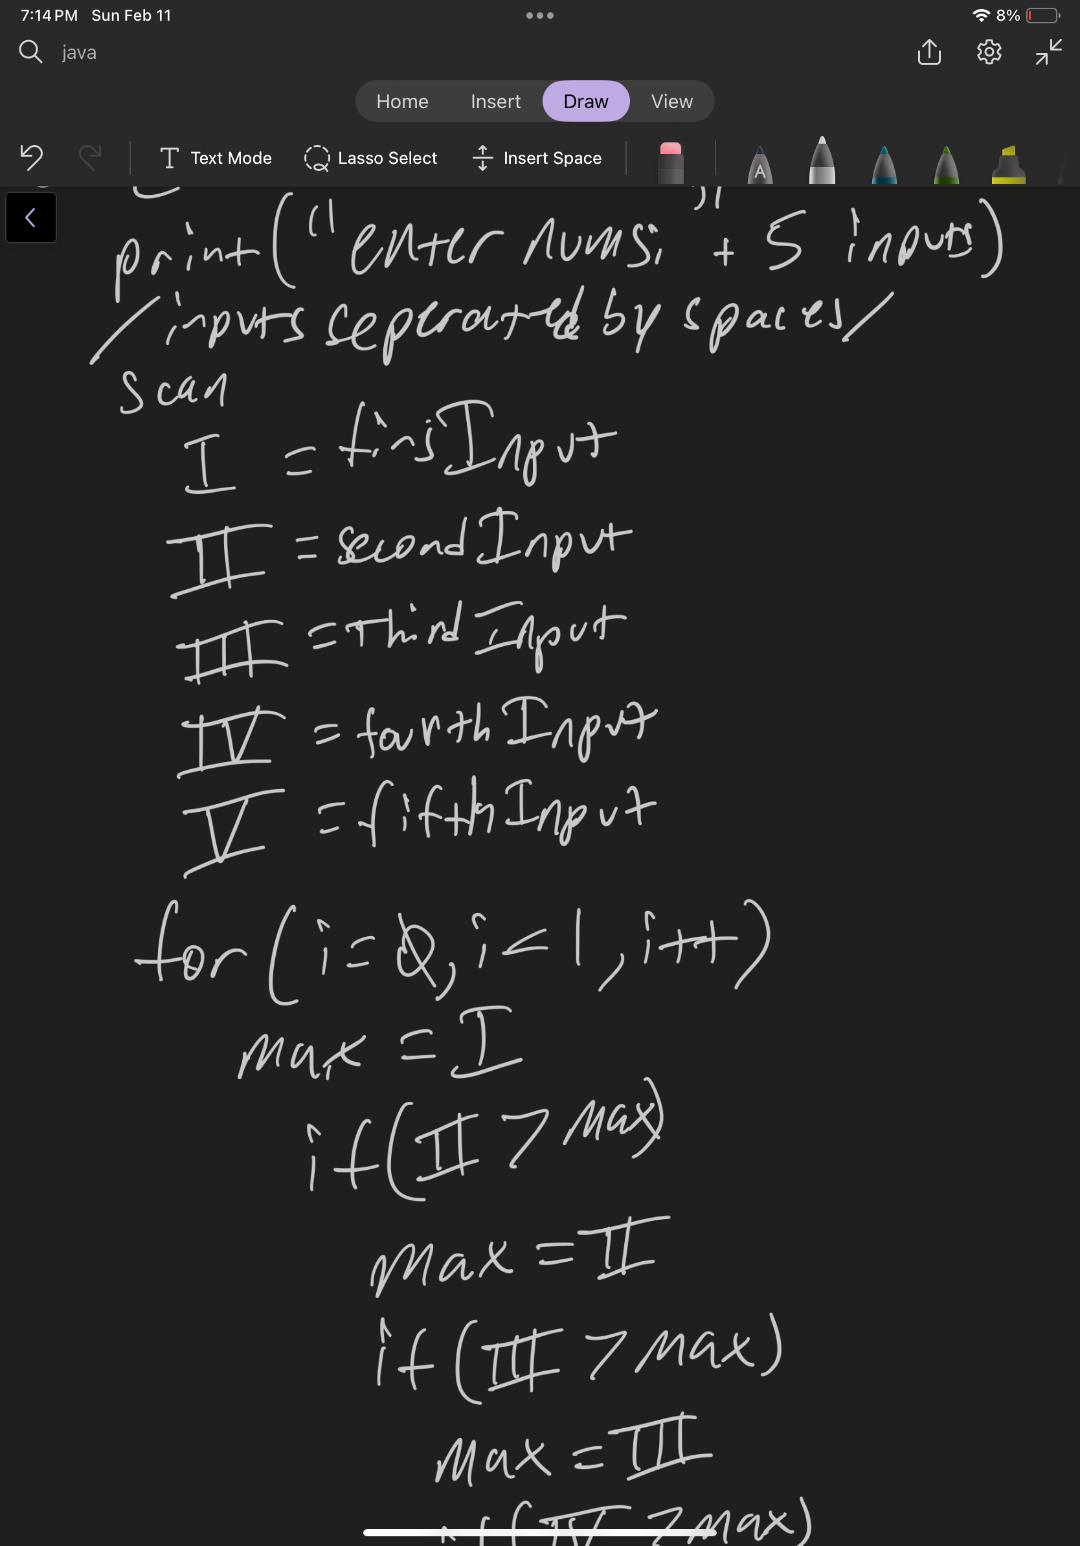 7:14 PM Sun Feb 11
8%
java
Home Insert Draw View
Text Mode Lasso Select Insert Space
A
print("enter nums: " + 5 inputs)
/inputs seperated by spaces/
scan
I = firsInput
II = secondInput
III = thirdInput
IV = fourthInput
V = fifthInput
for(i=0, i<1, i++)
max = I
if(II > max)
max = II
if(III > max)
max = III
if(IV > max)